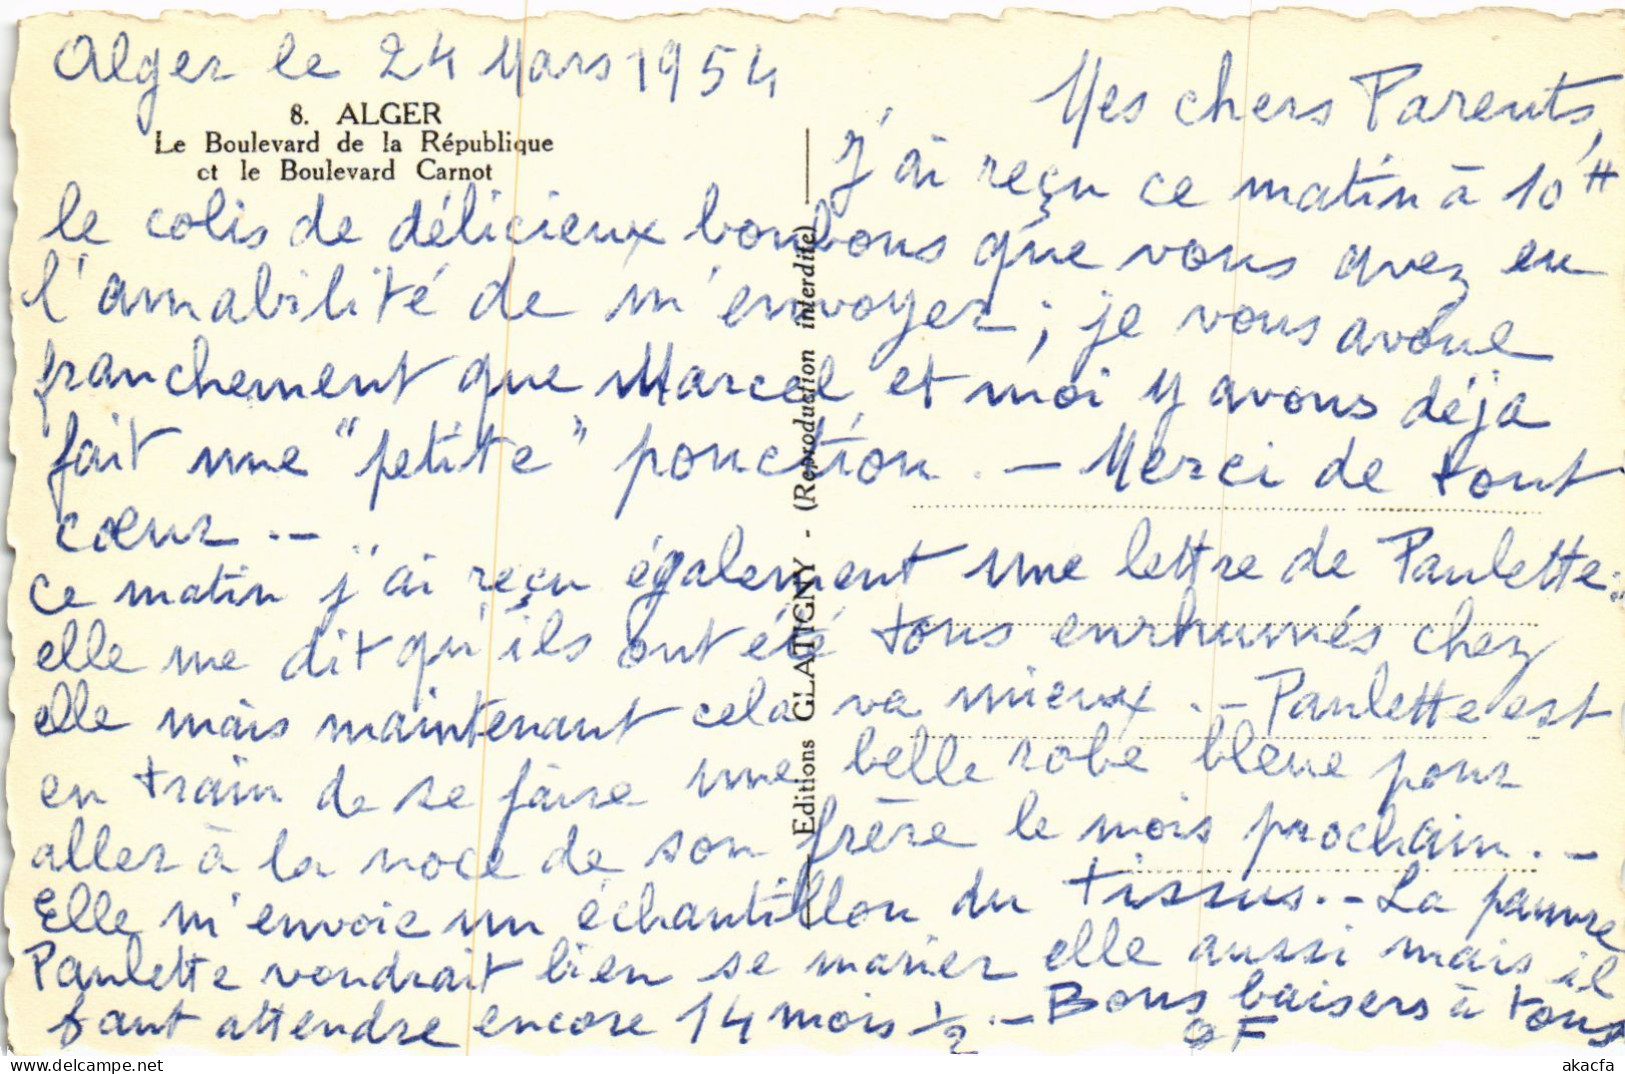 Alger le 24 Mars 1954
8. ALGER
Le Boulevard de la République
et le Boulevard Carnot
Mes chers Parents,
J'ai reçu ce matin à 10 H
le colis de délicieux bonbons que vous avez eu
l'amabilité de m'envoyer ; je vous avoue
franchement que Marcel et moi y avons déjà
fait une "petite" ponction. — Merci de tout
cœur. —
Ce matin j'ai reçu également une lettre de Paulette :
elle me dit qu'ils ont été tous enrhumés chez
elle mais maintenant cela va mieux. — Paulette est
en train de se faire une belle robe bleue pour
aller à la noce de son frère le mois prochain. —
Elle m'envoie un échantillon du tissus. — La pauvre
Paulette voudrait bien se marier elle aussi mais il
faut attendre encore 14 mois 1/2. — Bons baisers à tous
Editions GLATIGNY - (Reproduction interdite)
akacfa